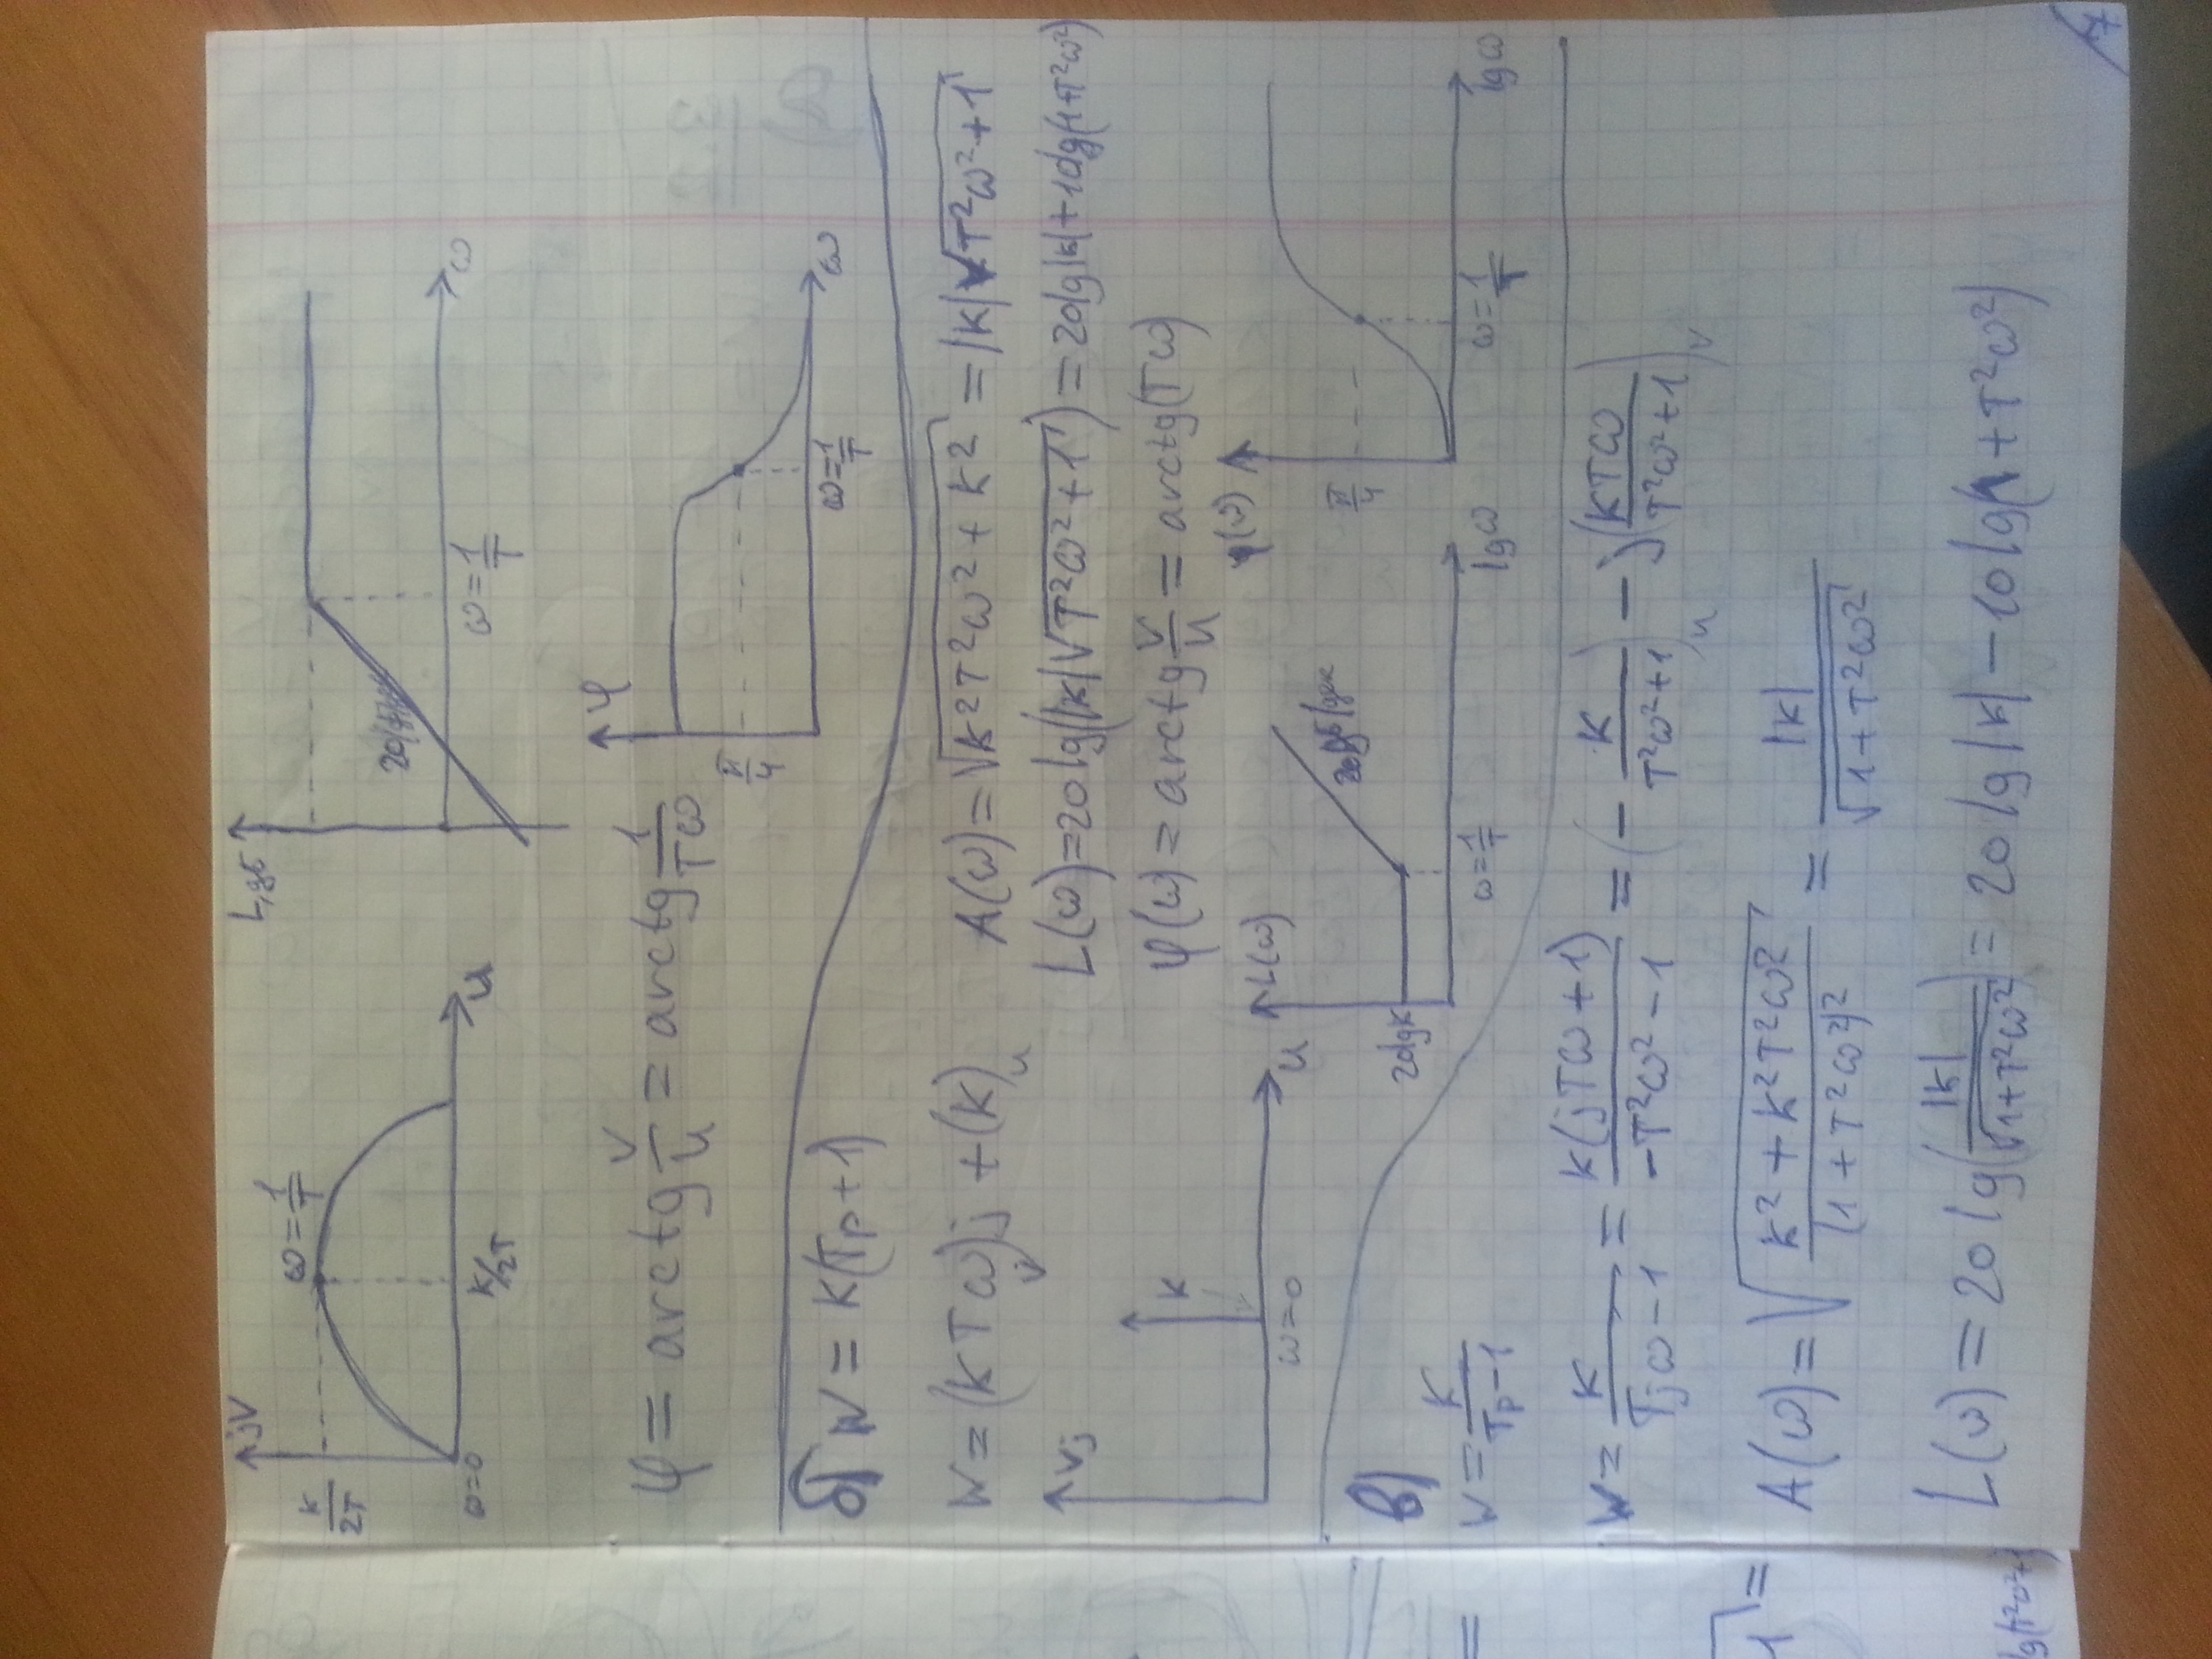 jV
K/2T
ω = 1/T
ω=0
K/2T
u
L, дб
ω = 1/T
ω
φ = arctg V/u = arctg 1/Tω
φ
π/4
ω = 1/T
ω
б) W = K(Tp+1)
W = (KTω)j + (K)
V
u
A(ω) = √(K²T²ω² + K²) = |K|√(T²ω²+1)
L(ω) = 20lg(|K|√(T²ω²+1)) = 20lg|K| + 10lg(1+T²ω²)
φ(ω) = arctg V/u = arctg(Tω)
Vj
K
ω=0
u
L(ω)
20дб/дек
20lgK
ω = 1/T
lgω
φ(ω)
π/4
ω = 1/T
lgω
в)
W = K/(Tp-1)
W = K/(Tjω-1) = K(jTω+1)/(-T²ω²-1) = (- K/(T²ω²+1))u - j(KTω/(T²ω²+1))v
A(ω) = √((K² + K²T²ω²)/(1+T²ω²)²) = |K|/√(1+T²ω²)
L(ω) = 20lg(|K|/√(1+T²ω²)) = 20lg|K| - 10lg(1+T²ω²)
lg(T²ω²+1)
7